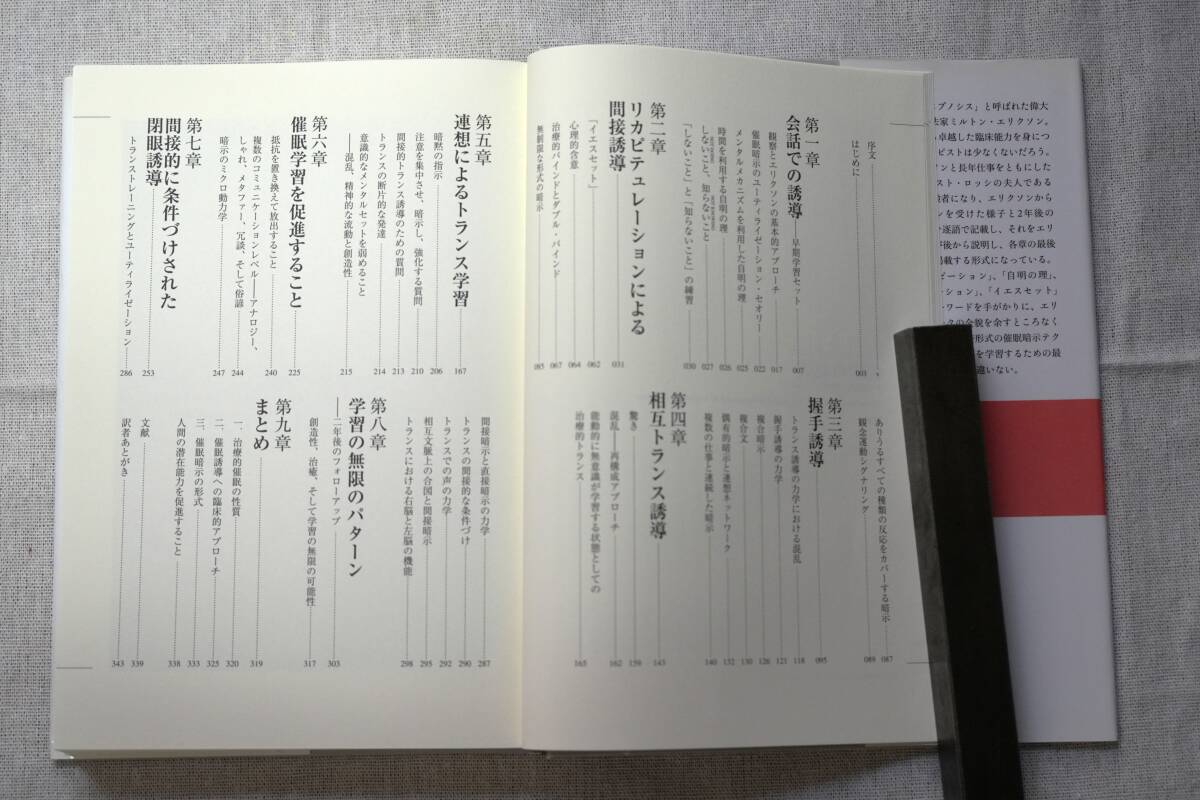 序文
はじめに 003
第一章
会話での誘導――早期学習セット 007
観察とエリクソンの基本的アプローチ 017
催眠暗示のユーティライゼーション・セオリー 022
メンタルメカニズムを利用した自明の理 025
時間を利用する自明の理 026
しないこと、知らないこと 027
「しないこと」と「知らないこと」の練習 030
第二章
リカピテュレーションによる
間接誘導 031
「イエスセット」 062
心理的含意 064
治療的バインドとダブル・バインド 067
無制限な形式の暗示 085
ありうるすべての種類の反応をカバーする暗示 087
観念運動シグナリング 089
第三章
握手誘導 095
トランス誘導の力学における混乱 118
握手誘導の力学 121
複合暗示 126
複合文 130
偶有的暗示と連想ネットワーク 132
複数の仕事と連続した暗示 140
第四章
相互トランス誘導 143
驚き 159
混乱――再構成アプローチ 162
能動的に無意識が学習する状態としての
治療的トランス 165
第五章
連想によるトランス学習 167
暗黙の指示 206
注意を集中させ、暗示し、強化する質問 210
間接的トランス誘導のための質問 213
トランスの断片的な発達 214
意識的なメンタルセットを弱めること
――混乱、精神的な流動と創造性 215
第六章
催眠学習を促進すること 225
抵抗を置き換えて放出すること 240
複数のコミュニケーションレベル――アナロジー、
しゃれ、メタファー、冗談、そして俗諺 244
暗示のミクロ動力学 247
第七章
間接的に条件づけされた
閉眼誘導 253
トランストレーニングとユーティライゼーション 286
間接暗示と直接暗示の力学 287
トランスの間接的な条件づけ 290
トランスでの声の力学 292
相互文脈上の合図と間接暗示 295
トランスにおける右脳と左脳の機能 298
第八章
学習の無限のパターン
――二年後のフォローアップ 303
創造性、治癒、そして学習の無限の可能性 317
第九章
まとめ 319
一、治療的催眠の性質 320
二、催眠誘導への臨床的アプローチ 325
三、催眠暗示の形式 333
人間の潜在能力を促進すること 338
文献 339
訳者あとがき 343
プノシス」と呼ばれた偉大
家ミルトン・エリクソン。
卓越した臨床能力を身につ
ピストは少なくないだろう。
ソンと長年仕事をともにした
スト・ロッシの夫人である
者になり、エリクソンから
ンを受けた様子と2年後の
逐語で記載し、それをエリ
後から説明し、各章の最後
載する形式になっている。
ーション」、「自明の理」、
ション」、「イエスセット」
ワードを手がかりに、エリ
クの全貌を余すところなく
形式の催眠暗示テク
を学習するための最
違いない。